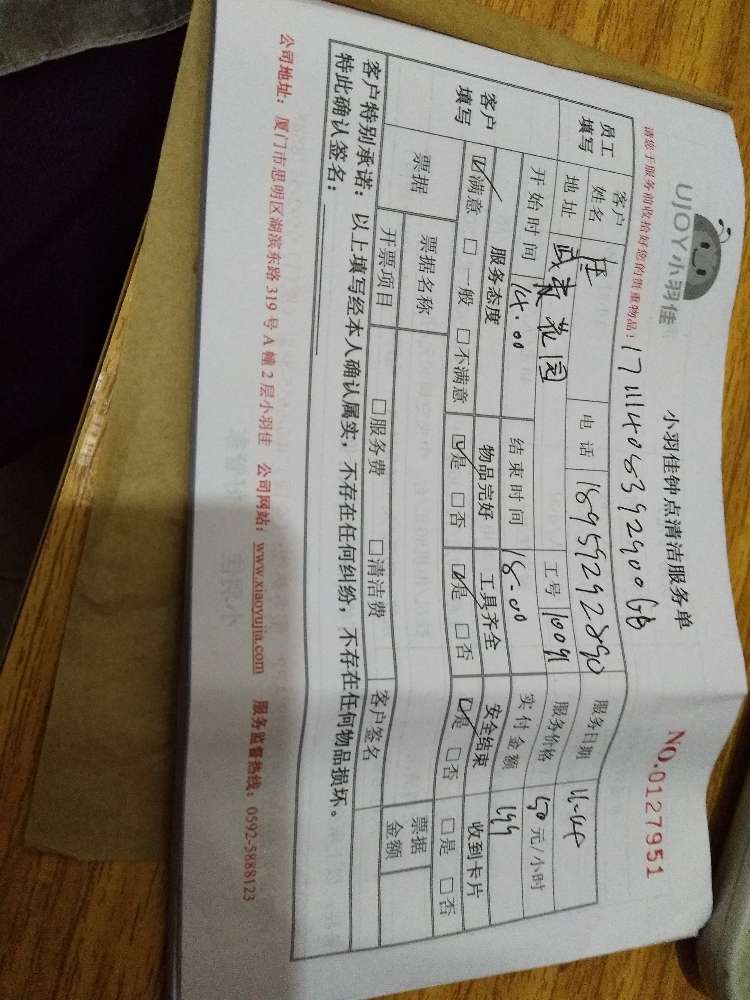 UJOY小羽佳
小羽佳钟点清洁服务单
NO.0127951
请您于服务前收拾好您的贵重物品!
员工填写 客户姓名 庄 电话 18959292890 服务日期 11-14
地址 花园 工号 10091 服务价格 50元/小时
开始时间 14.00 结束时间 18.00 实付金额 199
客户填写 服务态度 物品完好 工具齐全 安全结束 收到卡片
☑满意 □一般 □不满意 ☑是 □否 ☑是 □否 ☑是 □否 □是 □否
票据 票据名称 客户签名 票据金额
开票项目 □服务费 □清洁费
客户特别承诺:以上填写经本人确认属实,不存在任何纠纷,不存在任何物品损坏。
特此确认签名:
公司地址:厦门市思明区湖滨东路319号A幢2层小羽佳 公司网站:www.xiaoyujia.com 服务监督热线:0592-5888123